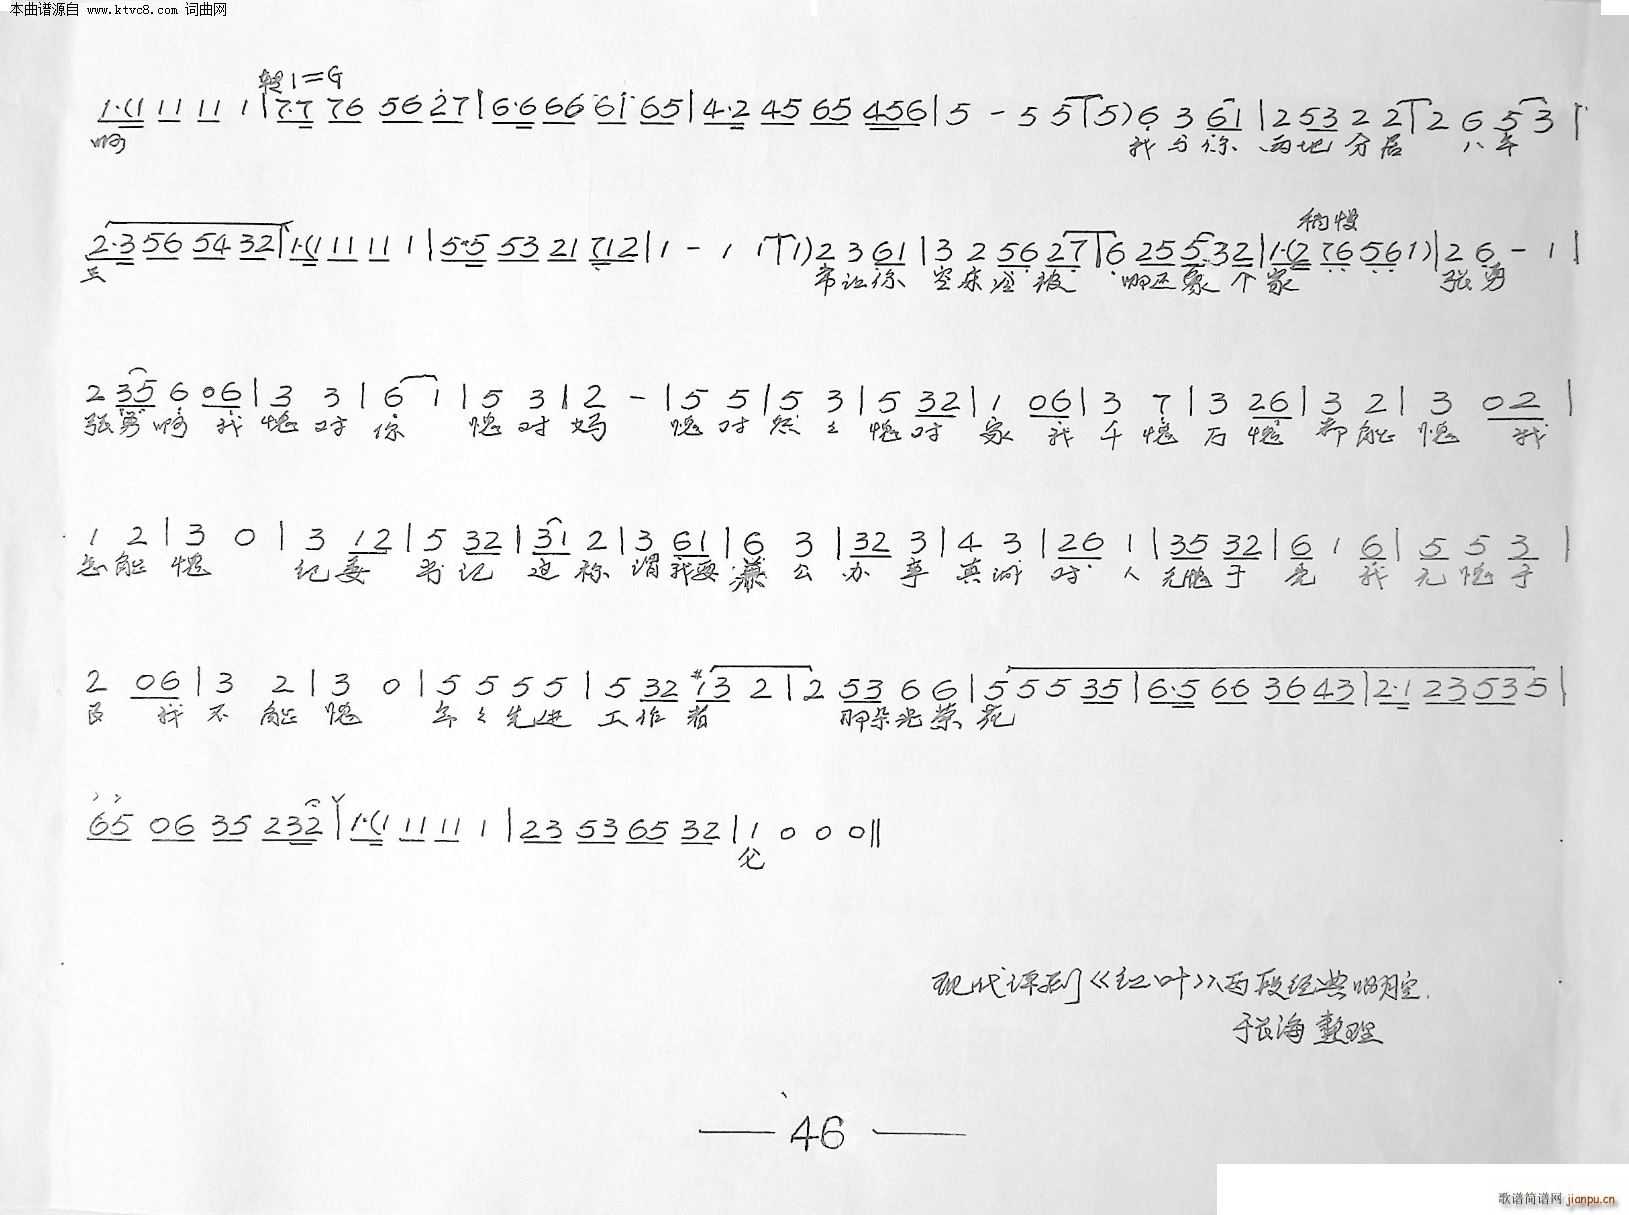 本曲谱源自 www.ktvc8.com 词曲网
转1=G
1·(1 11 11 1 | 7·7 76 56 27 | 6·6 66 61 65 | 4·2 45 65 456 | 5 - 5 5 (5) 6 3 61 | 2 53 2 2 | 2 6 5 3 |
啊 我与你 两地分居 八年
稍慢
2·3 56 54 32 | 1·(1 11 11 1 | 5·5 53 21 712 | 1 - 1 1 1) 2 3 61 | 3 2 56 27 | 6 25 5·32 | 1·(2 76 561) | 2 6 - 1 |
常让你 空床 被 哪还象个家 张勇
2 35 6 06 | 3 3 | 6 1 | 5 3 | 2 - | 5 5 | 5 3 | 5 32 | 1 06 | 3 7 | 3 26 | 3 2 | 3 02 |
张勇啊 我愧对你 愧对妈 愧对 愧对家 我千愧万愧都能愧 我
1 2 | 3 0 | 3 12 | 5 32 | 31 2 | 3 61 | 6 3 | 32 3 | 4 3 | 26 1 | 35 32 | 6 1 6 | 5 5 3 |
怎能愧 纪委书记 称谓我要 公办事真诚对人无愧于党 我无愧于
2 06 | 3 2 | 3 0 | 5 5 5 5 | 5 32 #13 2 | 2 53 6 6 | 5 5 5 35 | 6·5 66 36 43 | 2·1 23 53 5 |
民 我不能愧 年々先进工作者 那朵光荣花
65 06 35 232 | 1·(1 11 11 1 | 23 53 65 32 | 1 0 0 0 ||
现代评剧《红叶》两段经典唱腔.
于长海 整理
— 46 —
歌谱简谱网 jianpu.cn